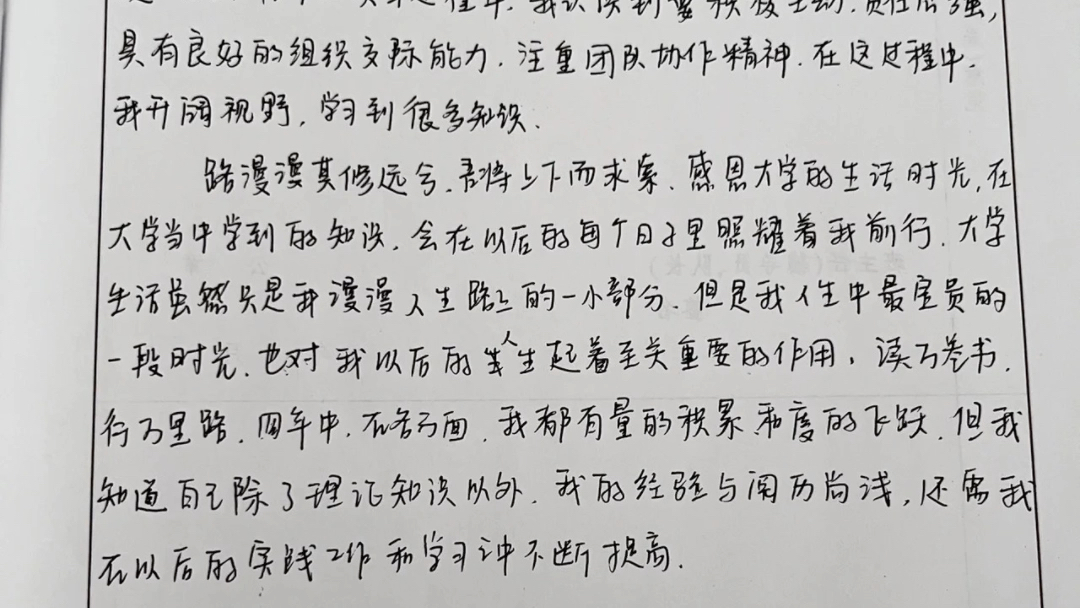 我认识到要积极主动,责任心强,
具有良好的组织交际能力.注重团队协作精神.在这过程中.
我开阔视野,学习到很多知识.
路漫漫其修远兮.吾将上下而求索.感恩大学的生活时光,在
大学当中学到的知识.会在以后的每个日子里照耀着我前行.大学
生活虽然只是我漫漫人生路上的一小部分.但是我人生中最宝贵的
一段时光.也对我以后的人生起着至关重要的作用.读万卷书.
行万里路.四年中.在各方面.我都有量的积累和度的飞跃.但我
知道自己除了理论知识以外.我的经验与阅历尚浅,还需我
在以后的实践工作和学习中不断提高.